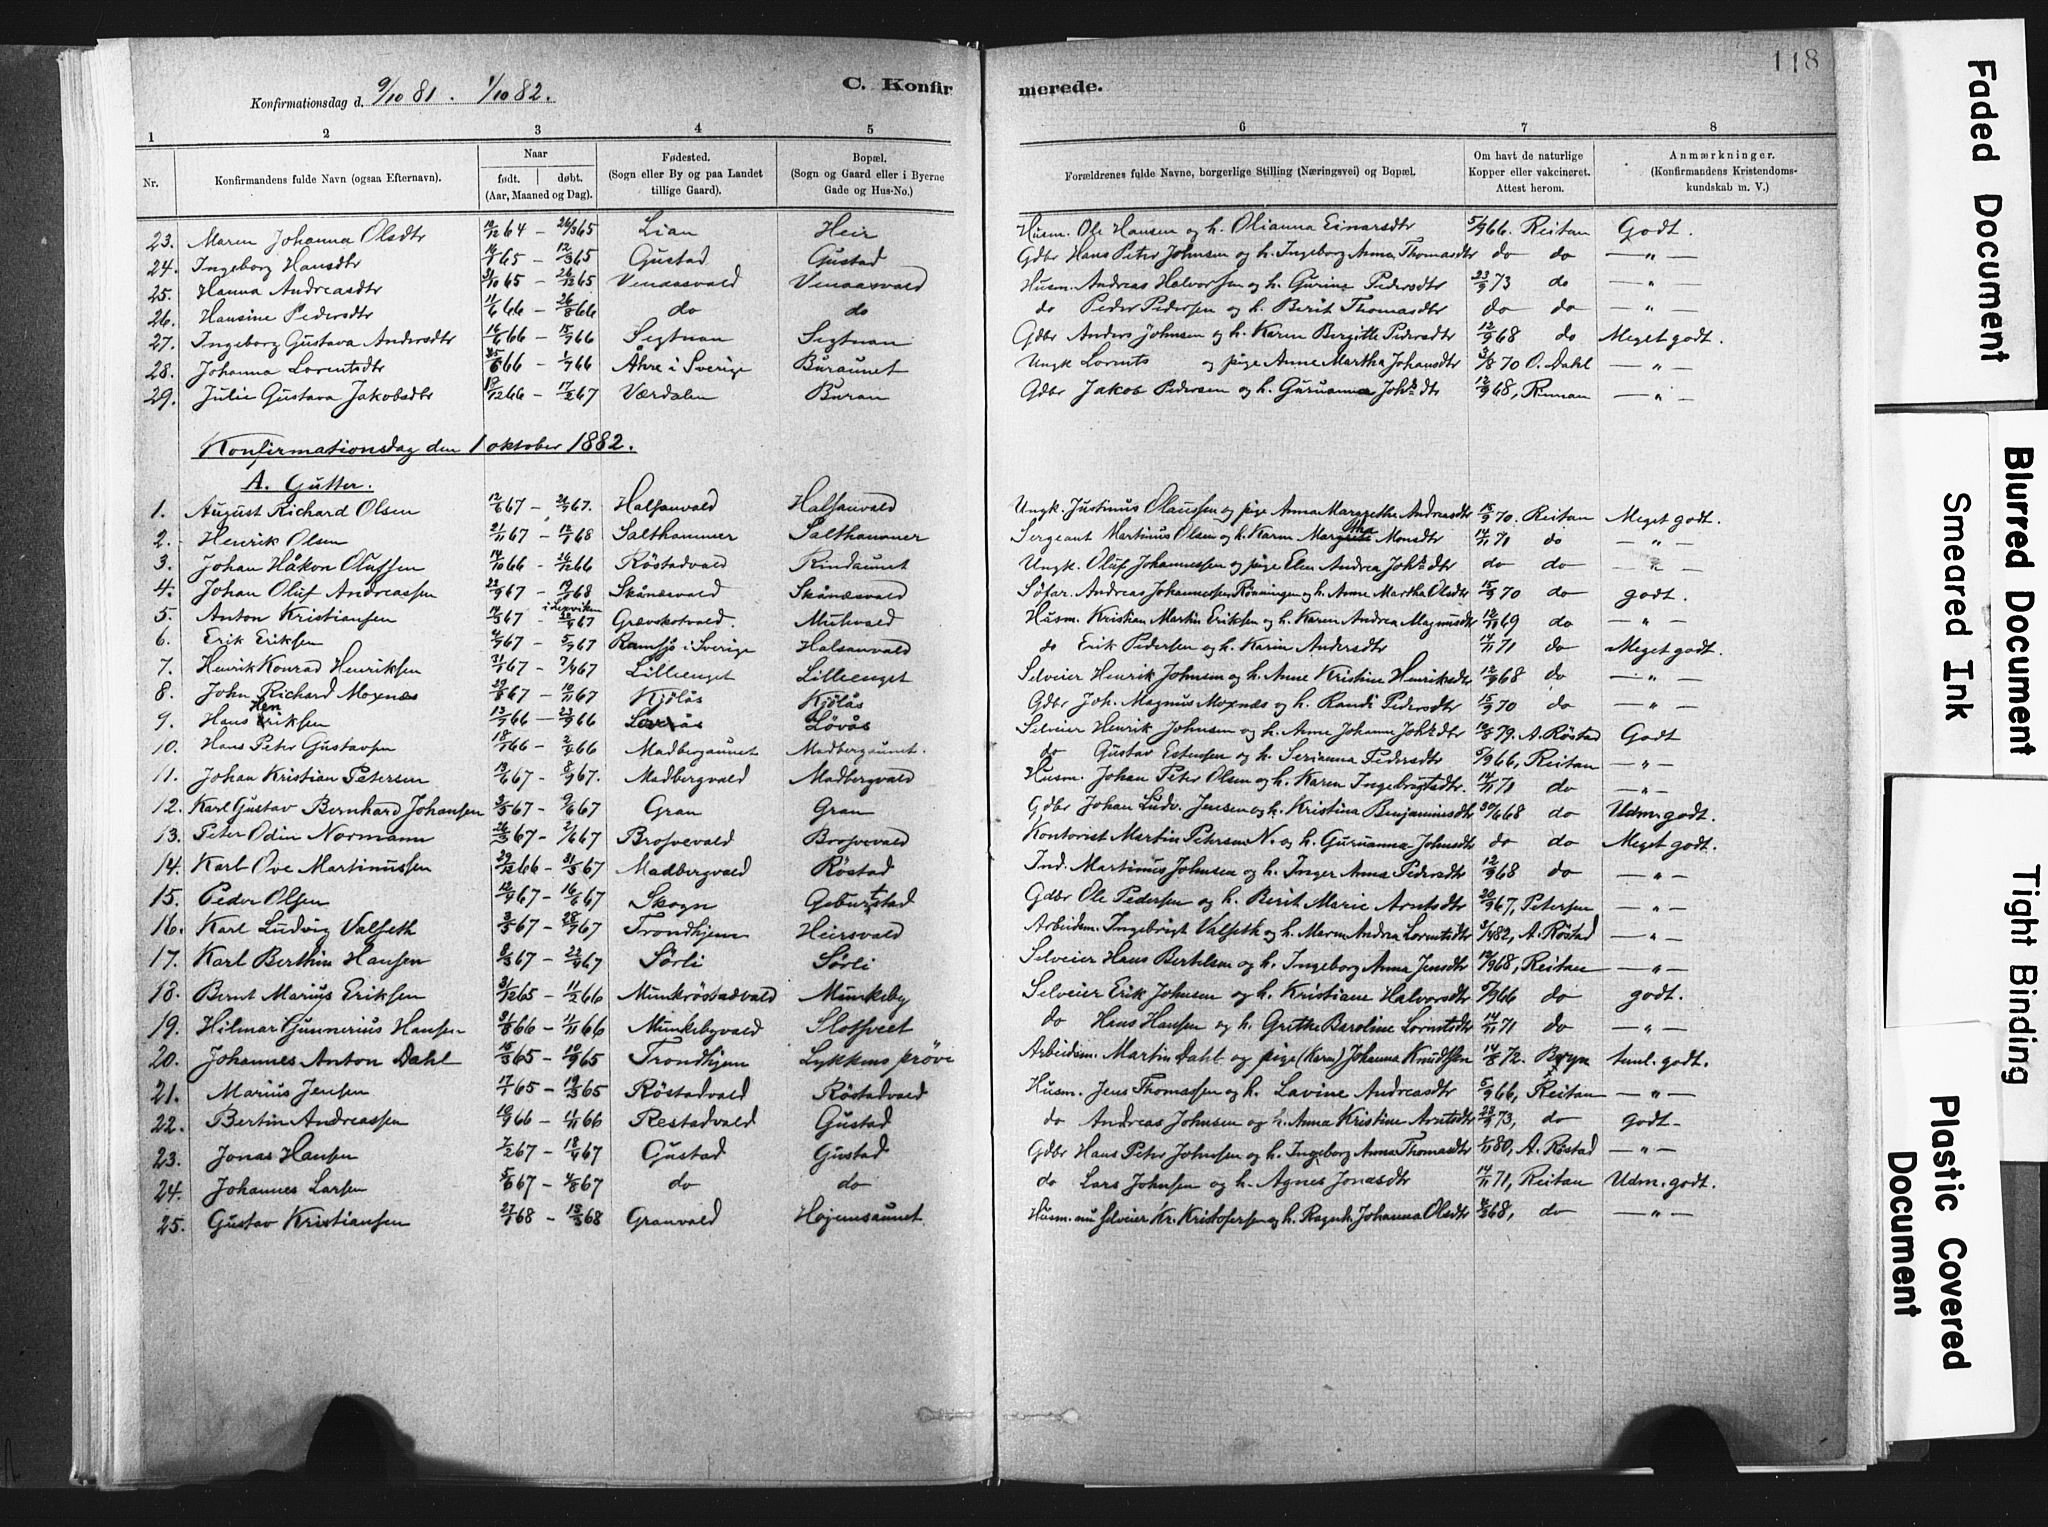 118
Konfirmationsdag d. 9/10 81. 1/10 82.
C. Konfirmerede.
1 2 3 4 5 6 7 8
Nr. Konfirmandens fulde Navn (ogsaa Efternavn). Naar født. døbt. (Aar, Maaned og Dag). Fødested. (Sogn eller By og paa Landet tillige Gaard). Bopæl. (Sogn og Gaard eller i Byerne Gade og Hus-No.) Forældrenes fulde Navne, borgerlige Stilling (Næringsvei) og Bopæl. Om havt de naturlige Kopper eller vakcineret. Attest herom. Anmærkninger. (Konfirmandens Kristendomskundskab m. V.)
23. Maren Johanna Olsdtr 64 — 65 Lian Heir Husm. Ole Hansen og h. Olianna Einarsdtr 5/9 66. Reitan Godt.
24. Ingeborg Hansdtr 65 — 12/3 65 Gustad Gustad Gdbr Hans Peter Johnsen og h. Ingeborg Anna Thomasdtr do do — " —
25. Hanna Andreasdtr 65 — 26/12 65 Venaasvald Venaasvald Husm. Andreas Halvorsen og h. Gurine Pedersdtr 23/9 73 do — " —
26. Hansine Pedersdtr 11/6 66 — 26/8 66 do do do Peder Pedersen og h. Berit Thomasdtr do do — " —
27. Ingeborg Gustava Andersdtr 66 — 15/7 66 Segtnan Segtnan Gdbr Anders Johnsen og h. Karen Bergitte Pedersdtr 12/9 68 do Meget godt.
28. Johanna Lorentsdtr 66 — 1/7 66 Åhre i Sverige Buraunet Ungk Lornts og pige Anne Martha Johansdtr 70 O. Dahl — " —
29. Julie Gustava Jakobsdtr 19/12 66 — 17/2 67 Værdalen Buran Gdbr Jakob Pedersen og h. Guruanna Johsdtr 12/9 68, Rinnan — " —
Konfirmationsdag den 1 oktober 1882.
A. Gutter.
1. August Richard Olsen 12/6 67 — 67. Halsanvald Halsanvald Ungk. Justinus Olaussen og pige Anna Margrethe Andreasdtr 15/9 70. Reitan Meget godt.
2. Henrik Olsen 21/11 67 — 68 Salthammer Salthammer Sergeant Martinus Olsen og h. Karen Margretha Monsdtr 14/11 71 do — " —
3. Johan Håkon Olufsen 14/10 66 — 26/12 66 Röstadvald Rindaunet Ungk. Oluf Johannessen og pige Elen Andrea Johsdtr do do — " —
4. Johan Oluf Andreassen 22/9 67 — 68 Skånæsvald Skånæsvald Söfar. Andreas Johannessen Rönningen og h. Anne Martha Olsdtr 15/9 70 do godt.
5. Anton Kristiansen 67 — i Lexviken 67 Grævskotvald. Muhvald Husm. Kristian Martin Eriksen og h. Karen Andrea Magnusdtr 69 do — " —
6. Erik Eriksen 67 — 5/7 67 Ramsjö i Sverige Halsanvald do Erik Pedersen og h. Karin Andersdtr 14/11 71 do Meget godt.
7. Henrik Konrad Henriksen 67 — 7/4 67 Lilleenget Lilleenget Selveier Henrik Johnsen og h. Anne Kristine Henriksdtr 12/9 68 do — " —
8. John Richard Moxnæs 67 — 10/11 67 Kjölås Kjölås Gdbr Joh. Magnus Moxnæs og h. Randi Pedersdtr 15/9 70 do — " —
9. Hans Henriksen 66 — 23/9 66 Lövås Lövås Selveier Henrik Johnsen og h. Anne Johanne Johsdtr 79. A. Röstad Godt
10. Hans Peter Gustavsen 18/1 66 — 2/4 66 Madbergaunet Madbergaunet. do Gustav Estensen og h. Serianna Pedersdtr 5/9 66, Reitan — " —
11. Johan Kristian Petersen 13/6 67 — 8/9 67. Madbergvald Madbergvald Husm. Johan Peter Olsen og h. Karen Ingebrigtsdtr. 14/11 71 do — " —
12. Karl Gustav Bernhard Johansen 67 — 9/6 67 Gran Gran Gdbr Johan Ludv. Jensen og h. Kristina Benjaminsdtr 30/6 68 do Udm. godt.
13. Peter Odin Normann 26/3 67 — 2/6 67 Brosvevald Brosvevald Kontorist Martin Petersen N. og h. Guruanna Johnsdtr do do Meget godt.
14. Karl Ove Martinussen 29/12 66 — 31/3 67 Madbergvald Röstad Ind. Martinus Johnsen og h. Inger Anna Pedersdtr 12/9 68 do — " —
15. Peder Olsen 67 — 16/6 67 Skogn Geburtstad Gdbr Ole Pedersen og h. Berit Marie Arntsdtr 20/9 67, Petersen — " —
16. Karl Ludvig Valseth 3/5 67 — 67 Trondhjem Heirsvald Arbeidsm. Ingebrigt Valseth og h. Maren Andrea Lorntsdtr 82, A. Röstad — " —
17. Karl Berthin Hansen 8/3 67 — 22/4 67 Sörli Sörli Selveier Hans Bertelsen og h. Ingeborg Anna Jensdtr 68, Reitan — " —
18. Bernt Marius Eriksen 31/12 65 — 11/2 66 Munkröstadvald Munkeby Selveier Erik Johnsen og h. Kristiane Halvorsdtr 5/9 66 do godt.
19. Hilmar Gunnerius Hansen 66 — 11/11 66 Munkebyvald Slotsveet do Hans Hansen og h. Grethe Baroline Lorntsdtr 14/11 71 do — " —
20. Johannes Anton Dahl 15/3 65 — 10/9 65 Trondhjem Lykkens pröve Arbeidsm. Martin Dahl og pige (Karen) Johanna Knudssen 14/8 72. Bryn teml. godt.
21. Marius Jensen 65 — 19/3 65 Röstadvald Röstadvald Husm. Jens Thomassen og h. Lavine Andreasdtr 5/9 66, Reitan — " —
22. Bertin Andreassen 10/9 66 — 11/11 66 Restadvald Gustad do Andreas Johnsen og h. Anna Kristine Arntsdtr 23/9 73, do godt
23. Jonas Hansen 7/2 67 — 18/4 67 Gustad Gustad Gdbr Hans Peter Johnsen og h. Ingeborg Anna Thomasdtr 80, A. Röstad — " —
24. Johannes Larsen 5/6 67 — 67 do do do Lars Johnsen og h. Agnes Jonasdtr 14/11 71, Reitan Udm. godt.
25. Gustav Kristiansen 27/1 68 — 15/3 68 Granvald Höjemsaunet Husm. nu selveier Kr. Kristofersen og h. Ragnh. Johanna Olsdtr 68, do — " —
Faded Document
Blurred Document
Smeared Ink
Tight Binding
Plastic Covered Document